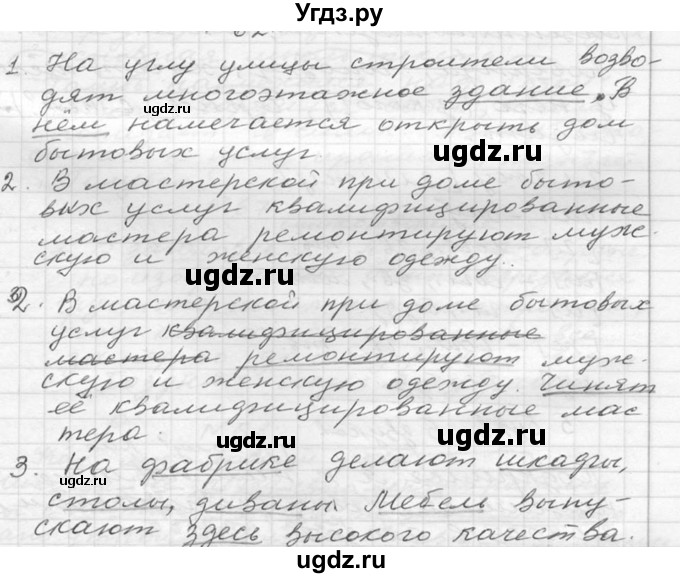 Угдз.ру
1. На углу улицы строители возво-
дят многоэтажное здание. В
нём намечается открыть дом
бытовых услуг
2. В мастерской при доме быто-
вых услуг квалифицированные
мастера ремонтируют муж-
скую и женскую одежду.
2. В мастерской при доме бытовых
услуг квалифицированные
мастера ремонтируют муж-
скую и женскую одежду. Чинят
её квалифицированные мас
тера.
3. На фабрике делают шкафы,
столы, диваны. Мебель выпу-
скают здесь высокого качества.
ugdz.ru
ugdz.ru
ugdz.ru
ugdz.ru
ugdz.ru
ugdz.ru
ugdz.ru
ugdz.ru
ugdz.ru